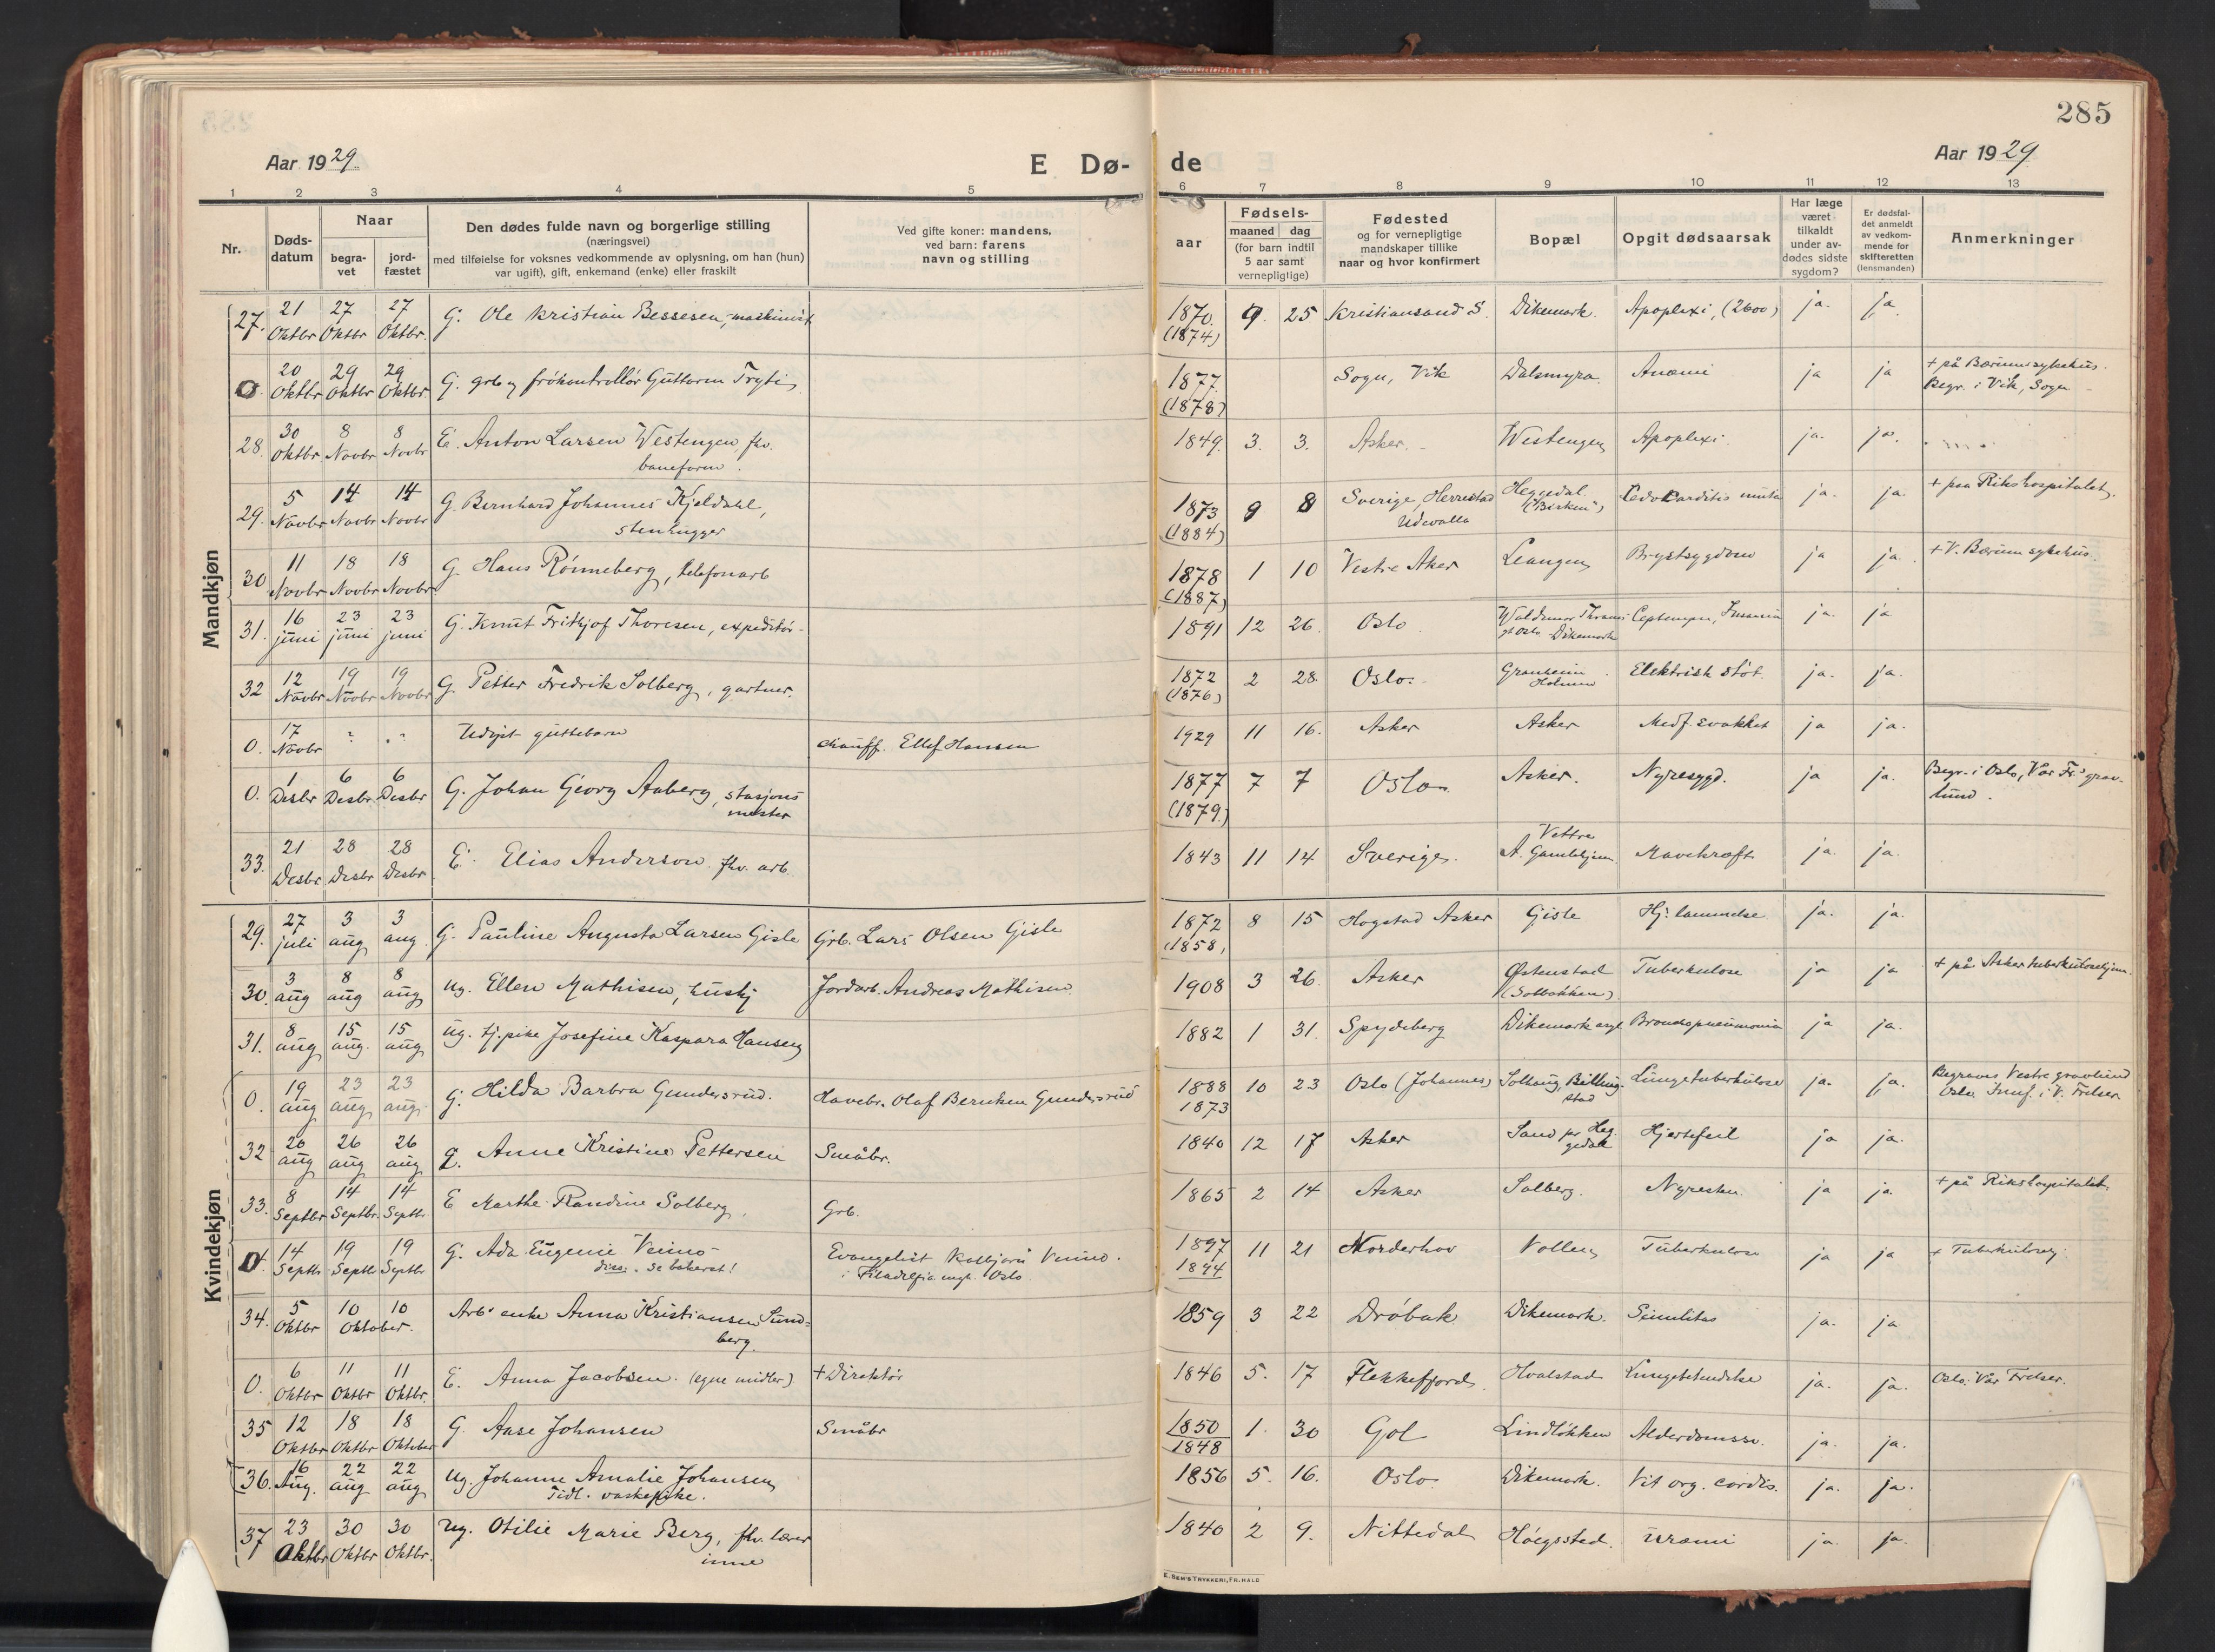 285
Aar 1929.
E Dø-
de
Aar 1929
1 2 3 4 5 6 7 8 9 10 11 12 13
Nr.
Døds-
datum
Naar
begra-
vet
jord-
fæstet
Den dødes fulde navn og borgerlige stilling
(næringsvei)
med tilføielse for voksnes vedkommende av oplysning, om han (hun)
var ugift), gift, enkemand (enke) eller fraskilt
Ved gifte koner: mandens,
ved barn: farens
navn og stilling
aar
Fødsels-
maaned dag
(for barn indtil
5 aar samt
vernepligtige)
Fødested
og for vernepligtige
mandskaper tillike
naar og hvor konfirmert
Bopæl
Opgit dødsaarsak
Har læge
været
tilkaldt
under av-
dødes sidste
sygdom?
Er dødsfal-
det anmeldt
av vedkom-
mende for
skifteretten
(lensmanden)
Anmerkninger
Mandkjøn
27. 21 Oktbr 27 Oktbr 27 Oktbr. G. Ole Kristian Bessesen, maskinist 1870. (1874) 9. 25. Kristiansand S. Dikemark. Apoplexi, (2600) ja. ja.
0. 20 Oktbr 29 Oktbr 29 Oktbr G. grb. og frökontrollör Guttorm Tryti 1877. (1878) Sogn, Vik Dalsmyra. Anæmi ja ja + på Bærum sykehus.
Begr. i Vik, Sogn
28. 30 Oktbr 8 Novbr 8 Novbr E. Anton Larsen Westengen, fhv.
baneform. 1849. 3. 3. Asker. Westengen Apoplexi. ja. ja.
29. 5 Novbr 14 Novbr 14 Novbr G. Bernhard Johannes Kjeldahl,
stenhugger 1873 (1884) 9 8 Sverige, Herrestad
Udevalla Heggedal.
("Birken") ja. ja. + paa Rikshospitalet.
30 11 Novbr 18 Novbr 18 Novbr. G Hans Rönneberg, telefonarb 1878 (1887) 1 10 Vestre Aker Leangen Brystsygdom ja ja. + V. Bærum sykehus.
31. 16 juni 23 juni 23 juni G. Knut Fritjof Thoresen, expeditör. 1891 12 26. Oslo. Waldemar Thranes
gt Oslo. Dikemark ja. ja
32 12 Novbr 19 Novbr 19 Novbr G. Petter Fredrik Solberg, gartner. 1872 (1876) 2 28. Oslo. Granheim
Holmen Elektrisk støt. ja. ja.
0. 17 Novbr Udøpt guttebarn chauff. Ellef Hansen 1929 11 16. Asker Asker Medf. svakhet ja ja.
0. 1 Desbr 6 Desbr 6 Desbr G. Johan Georg Aaberg, stasjons
mester 1877 (1879) 7 7 Oslo. Asker. Nyresygd. ja ja. Begr. i Oslo, Vår Fr's grav-
lund.
33. 21 Desbr 28 Desbr 28 Desbr E. Elias Anderson. fhv. arb. 1843 11 14 Sverige. Vettre
A. Gamlehjem. Mavekræft ja. ja.
Kvindekjøn
29. 27 juli 3 aug 3 aug. G. Pauline Augusta Larsen Gisle Grb. Lars Olsen Gisle 1872 (1858) 8 15 Hogstad Asker Gisle Hj. lammelse ja. ja.
30. 3 aug 8 aug 8 aug ug. Ellen Mathisen, hushj Jordarb. Andreas Mathisen. 1908 3 26. Asker Østenstad
(Solbakken). Tuberkulose ja ja + på Asker tuberkulosehjem.
31. 8 aug 15 aug. 15 aug ug. tj. pike Josefine Kaspara Hansen 1882 1 31. Spydeberg Dikemark asyl Bronchopneumonia ja ja.
0. 19 aug 23 aug 23 aug. G. Hilda Barbra Gundersrud. Havebr. Olaf Berntsen Gundersrud 1888 1873 10 23 Oslo (Johannes) Solhaug, Billing-
stad Lungetuberkulose ja. ja. Begraves Vestre gravlund
Oslo. Innf. i V. Frelser
32 20 aug 26 aug 26 aug g. Anne Kristine Pettersen Småbr. 1840 12 17 Asker Sand pr Heg-
gedal Hjertefeil ja ja.
33. 8 Septbr 14 Septbr. 14 Septbr. E Marthe Randine Solberg. Grb. 1865 2 14 Asker Solberg. ja ja + på Rikshospitalet.
0. 14 Septbr 19 Septbr 19 Septbr G. Ada Eugenie Veimo
diss. se bakerst! Evangelist Kolbjørn Veimo.
i Filadelfia mgh. Oslo 1897 1894 11 21 Norderhov Vollen Tuberkulose ja ja + Tuberkulosehj.
34. 5 Oktbr 10 10 Oktober. Arb. enke Anna Kristiansen Sund-
berg. 1859 3 22 Dröbak Dikemark. Senilitas ja. ja
0. 6 Oktbr 11 Oktbr 11 Oktbr. E. Anna Jacobsen. (egne midler) + Direktör 1846 5. 17 Flekkefjord. Hvalstad Lungebetendelse ja. ja. Oslo. Vår Frelser.
35 12 Oktbr 18 Oktbr 18 Oktober G. Aase Johansen Småbr 1850 1848 1. 30 Gol Lindløkken Alderdomssv. ja. ja.
36. 16 Aug. 22 aug 22 aug Ug. Johanne Amalie Johansen
Tidl. vaskepike. 1856 5. 16. Oslo. Dikemark. Vit. org. cordis. ja. ja.
37 23 Oktbr 30 Oktbr 30 Oktbr. Ug. Otilie Marie Berg, fhv. lærer
inne 1840 2 9. Nittedal Høegsted. uræmi ja. ja.
E. SEM'S TRYKKERI, FR.HALD